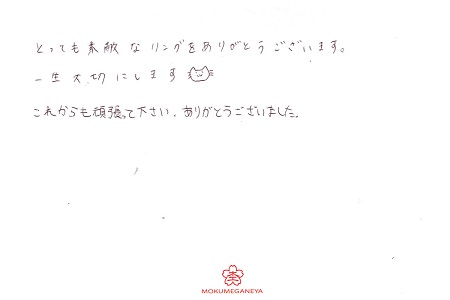 とっても素敵なリングをありがとうございます。
一生大切にします
これからも頑張って下さい。ありがとうございました。
MOKUMEGANEYA